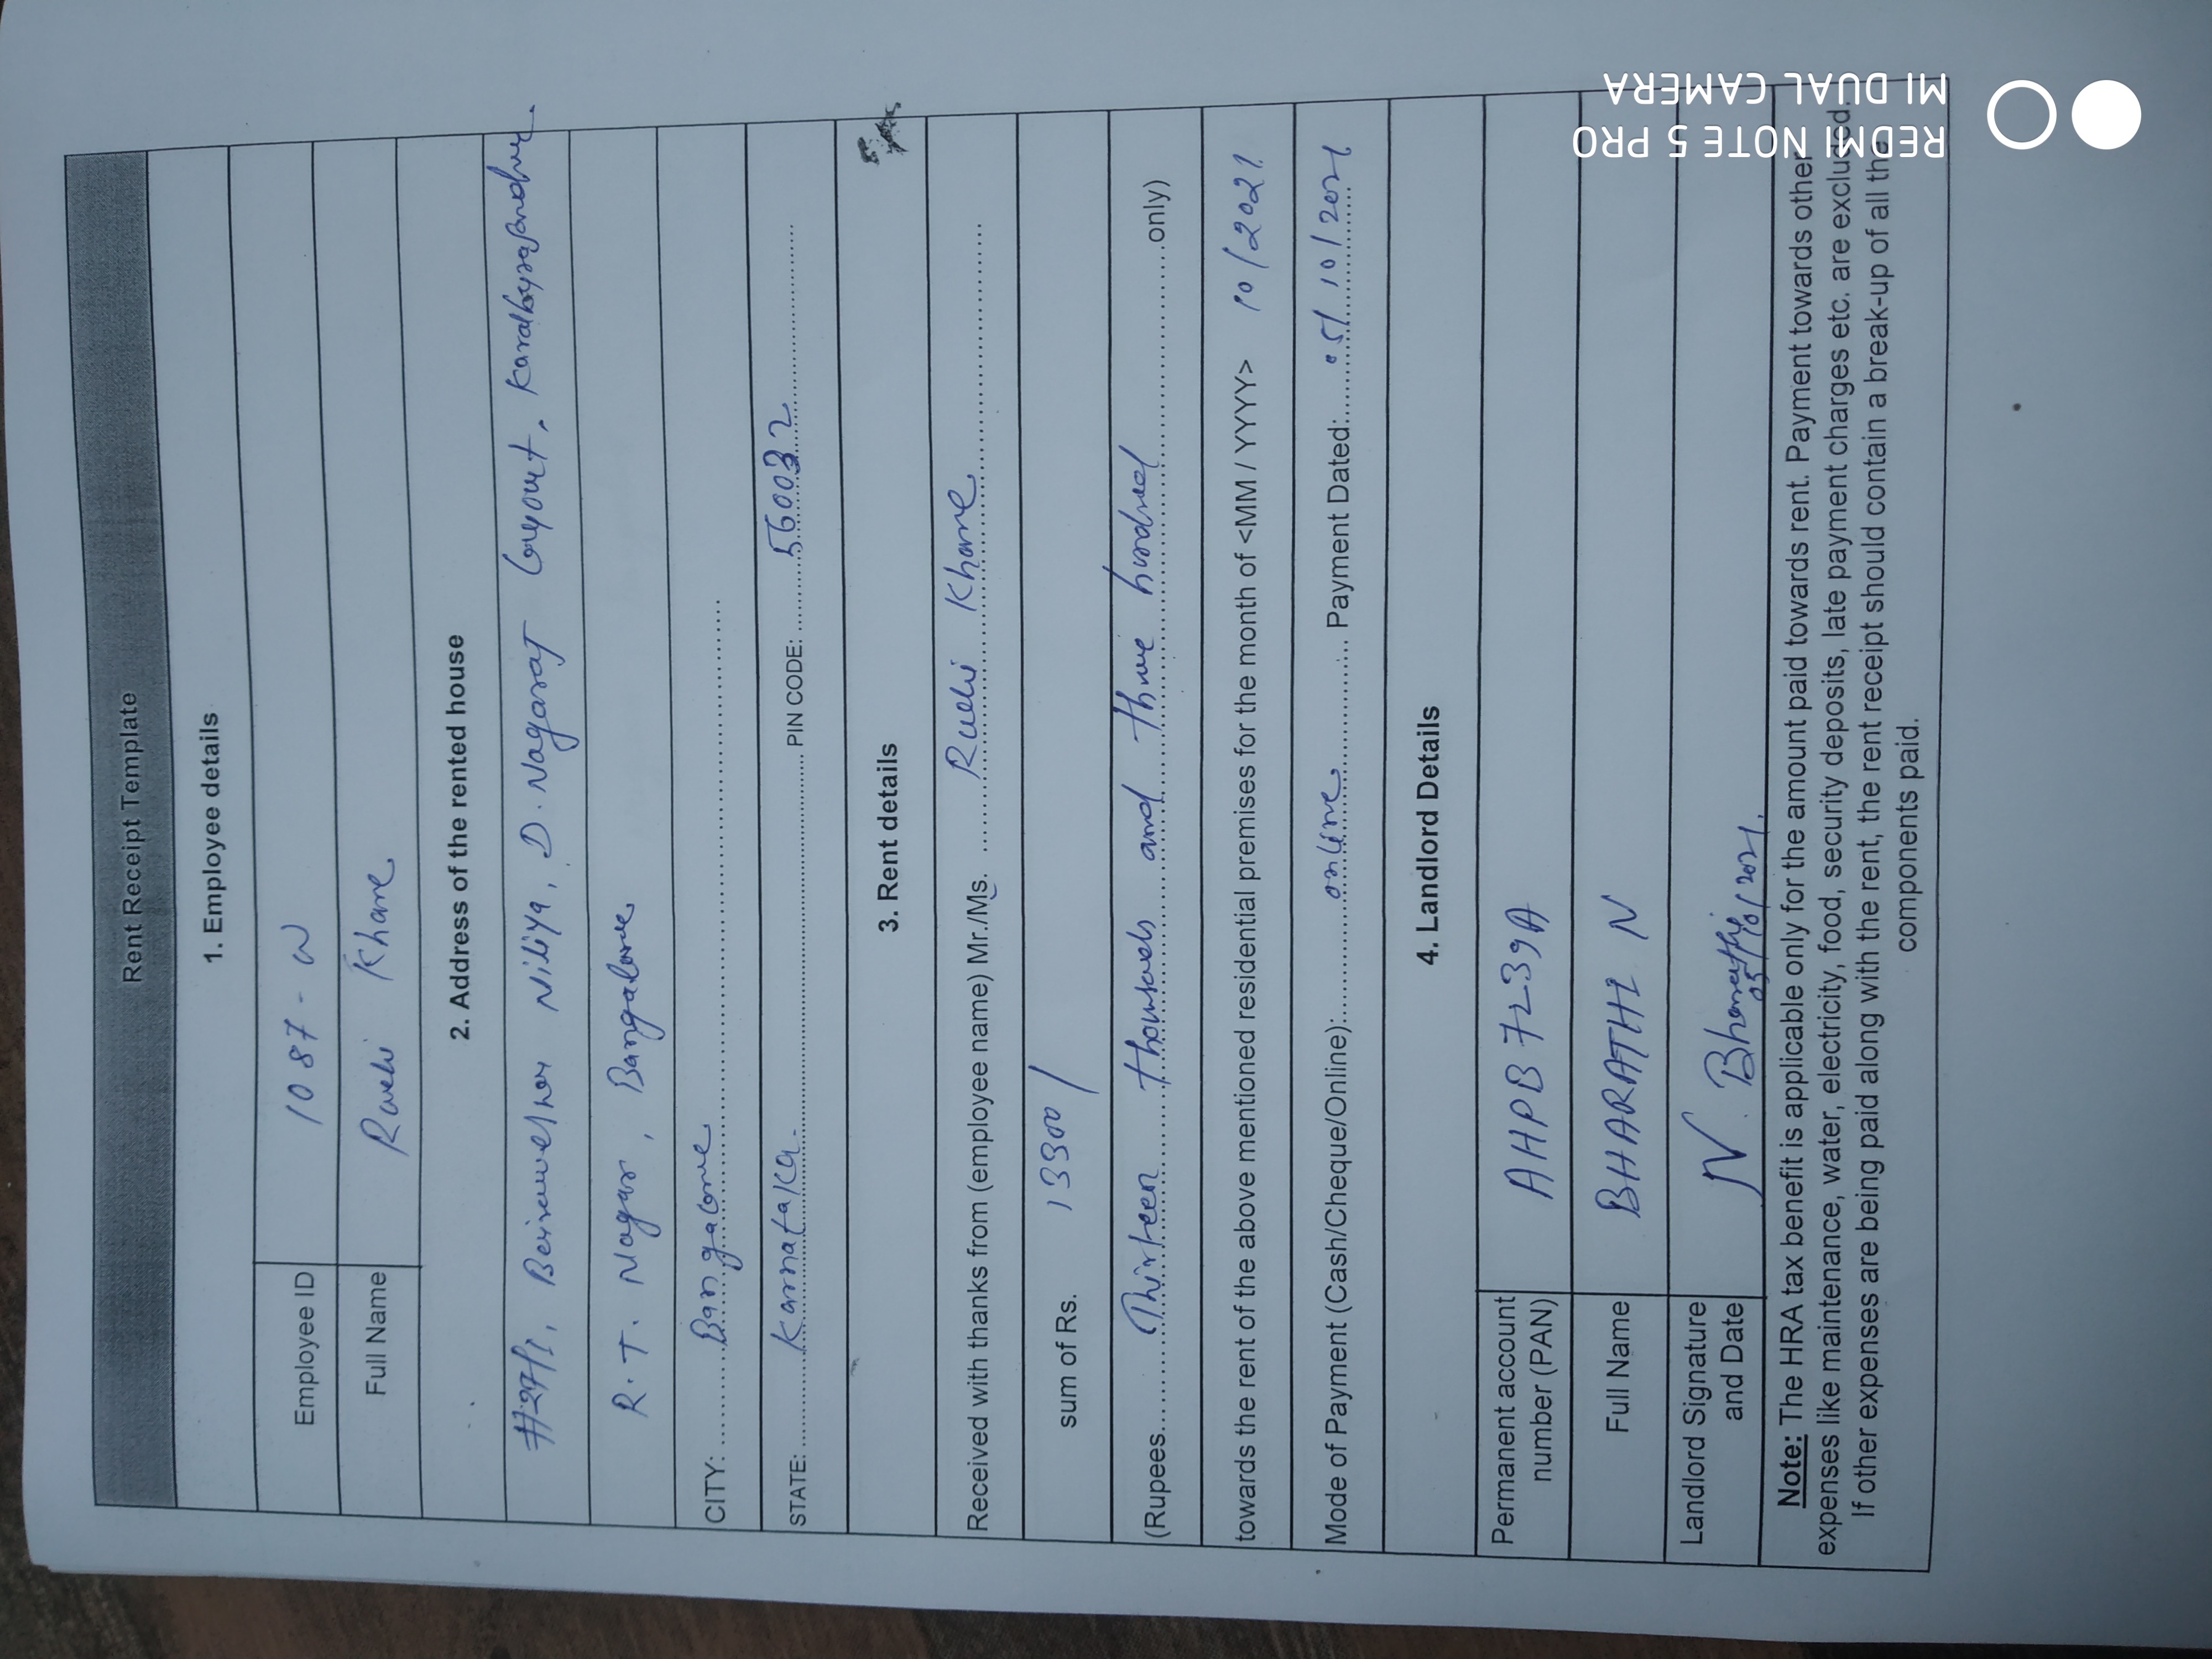 Rent Receipt Template
1. Employee details
Employee ID 1087-W
Full Name Khare
2. Address of the rented house
D. Nagaraj Layout,
R.T. Nagar, Bangalore
CITY: Bangalore
STATE: Karnataka. PIN CODE: 560032
3. Rent details
Received with thanks from (employee name) Mr./Ms. Khare
sum of Rs. 13300/
(Rupees Thirteen thousands and three hundred only)
towards the rent of the above mentioned residential premises for the month of <MM / YYYY> 10/2021
Mode of Payment (Cash/Cheque/Online): online Payment Dated: 05/10/2021
4. Landlord Details
Permanent account
number (PAN) AHPB7239A
Full Name BHARATHI N
Landlord Signature
and Date N. Bharathi
05/10/2021.
Note: The HRA tax benefit is applicable only for the amount paid towards rent. Payment towards other
expenses like maintenance, water, electricity, food, security deposits, late payment charges etc. are excluded
If other expenses are being paid along with the rent, the rent receipt should contain a break-up of all the
components paid.
REDMI NOTE 5 PRO
MI DUAL CAMERA